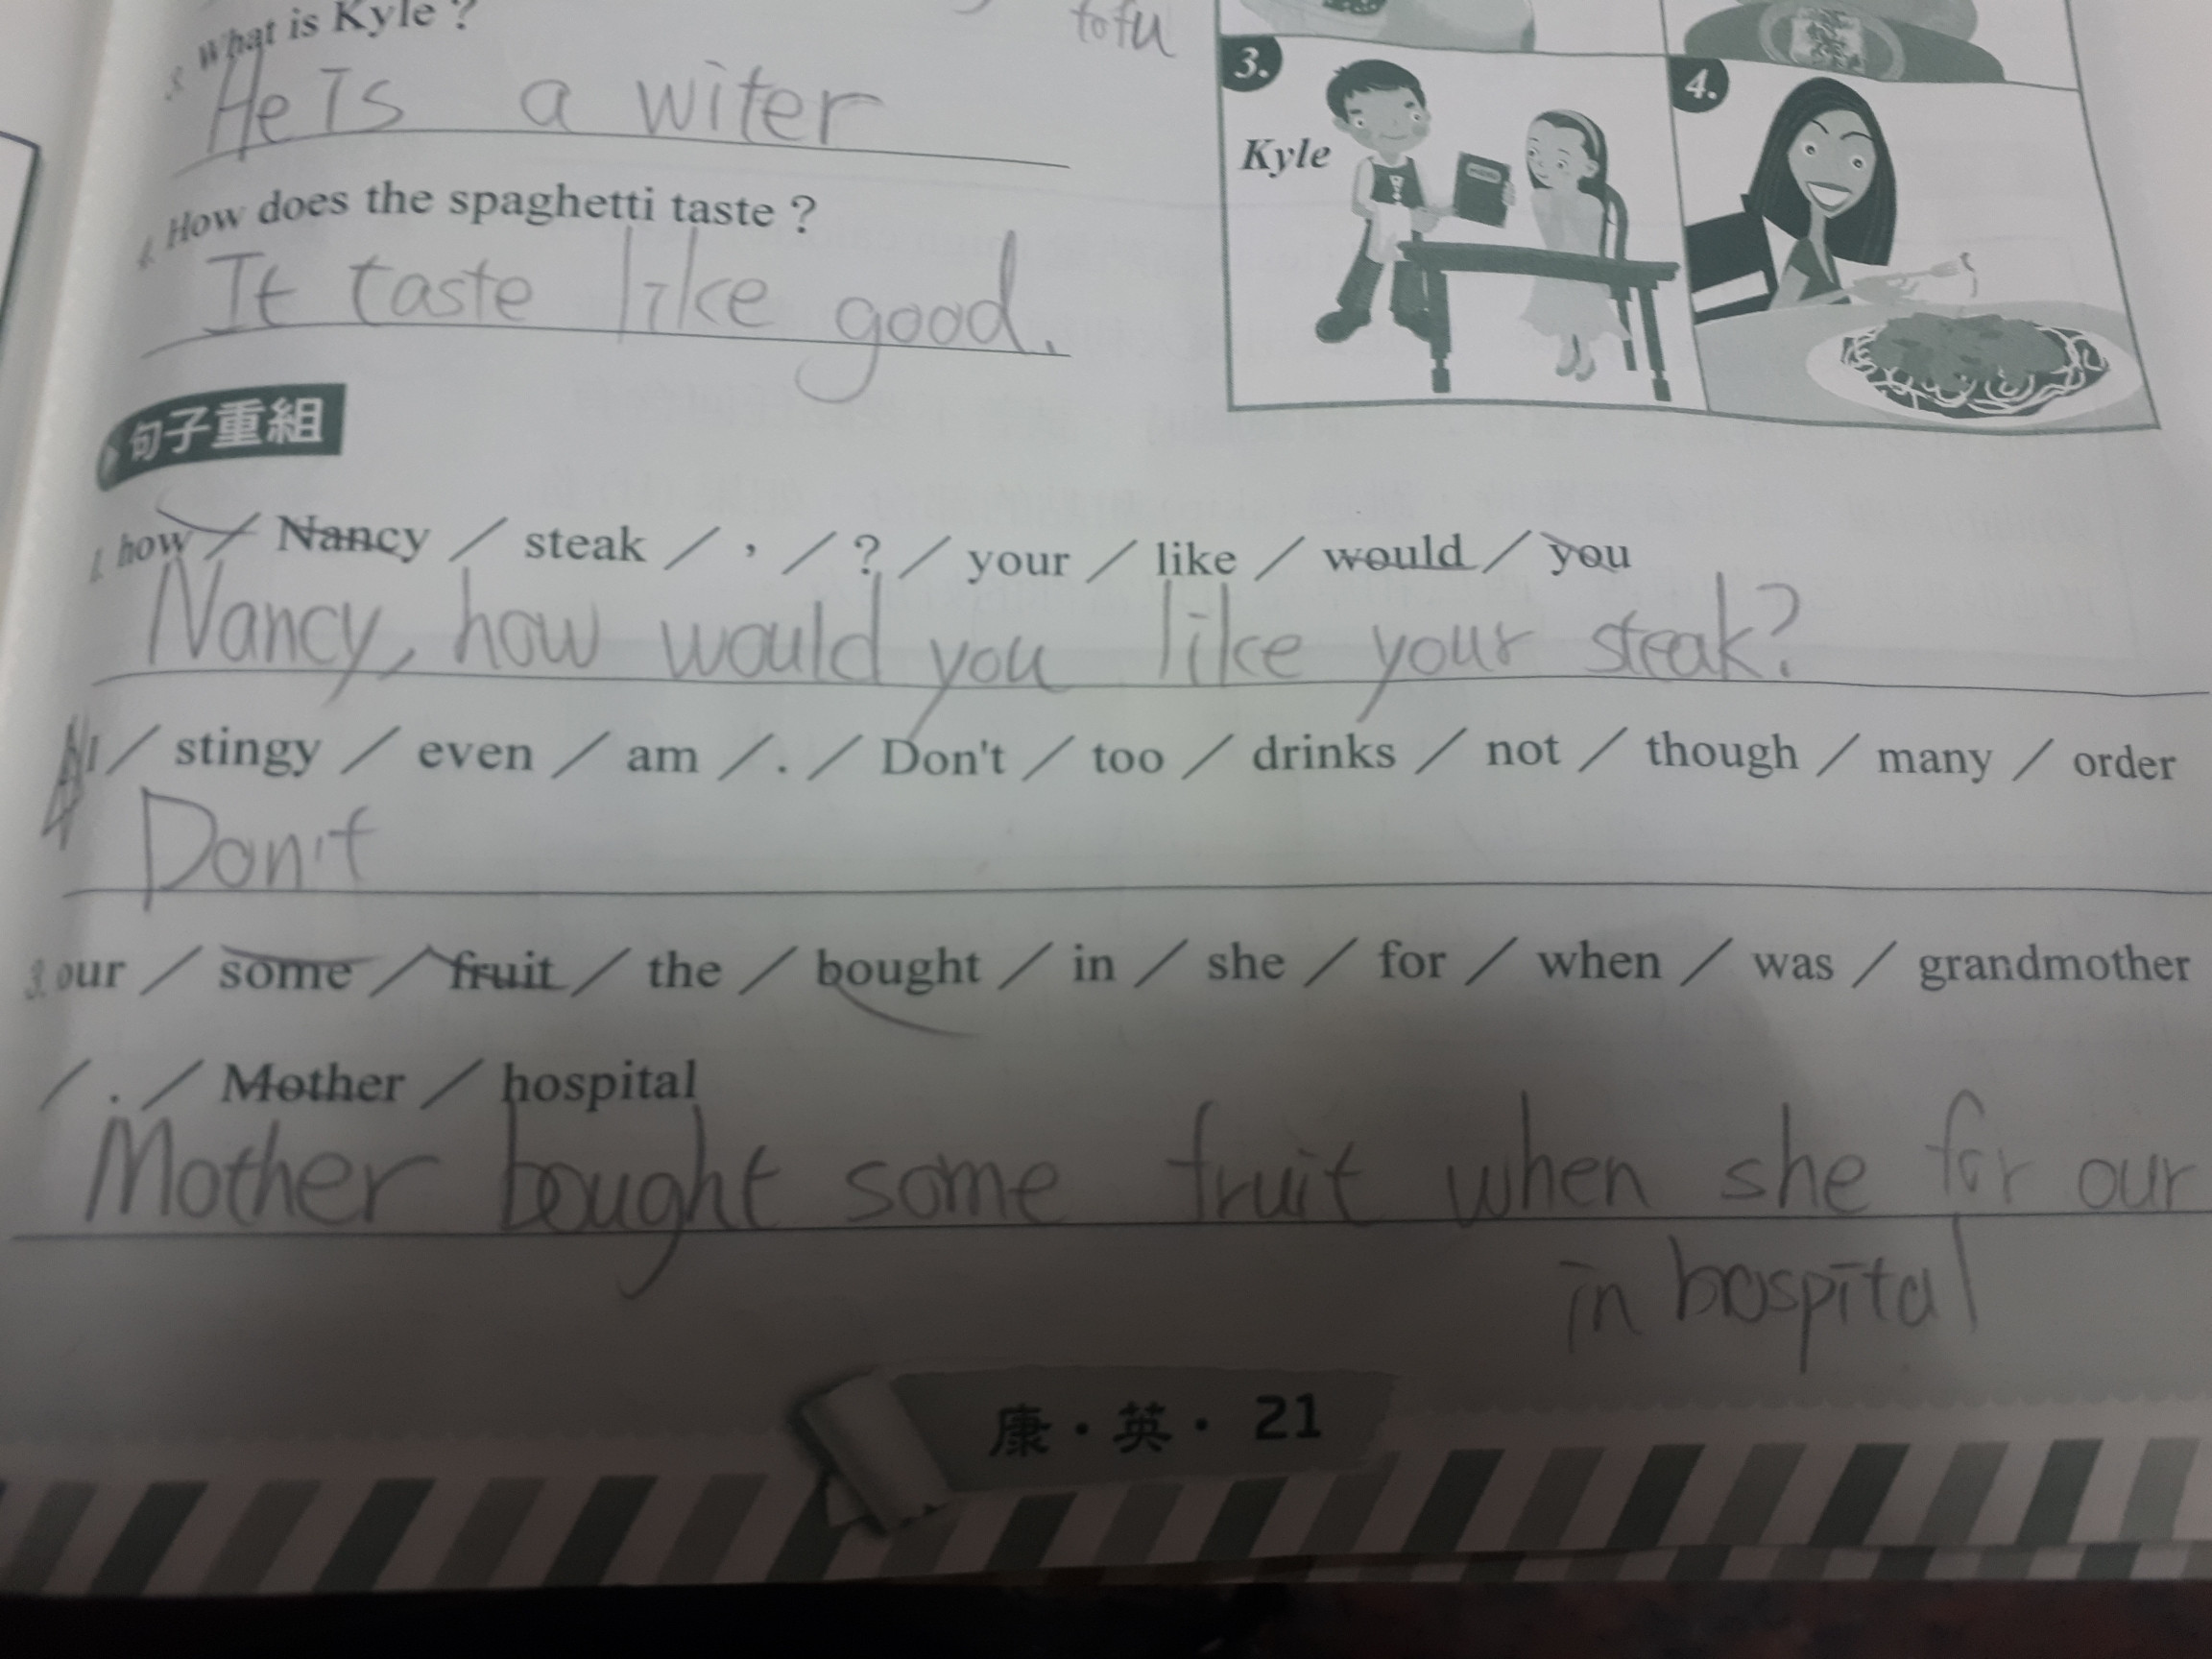 tofu
3. What is Kyle ?
He is a witer
4. How does the spaghetti taste ?
It taste like good.
3.
Kyle
4.
句子重組
1. how / Nancy / steak / , / ? / your / like / would / you
Nancy, how would you like your steak?
I / stingy / even / am / . / Don't / too / drinks / not / though / many / order
Don't
3. our / some / fruit / the / bought / in / she / for / when / was / grandmother
/ . / Mother / hospital
Mother bought some fruit when she for our
in hospital
康・英・21